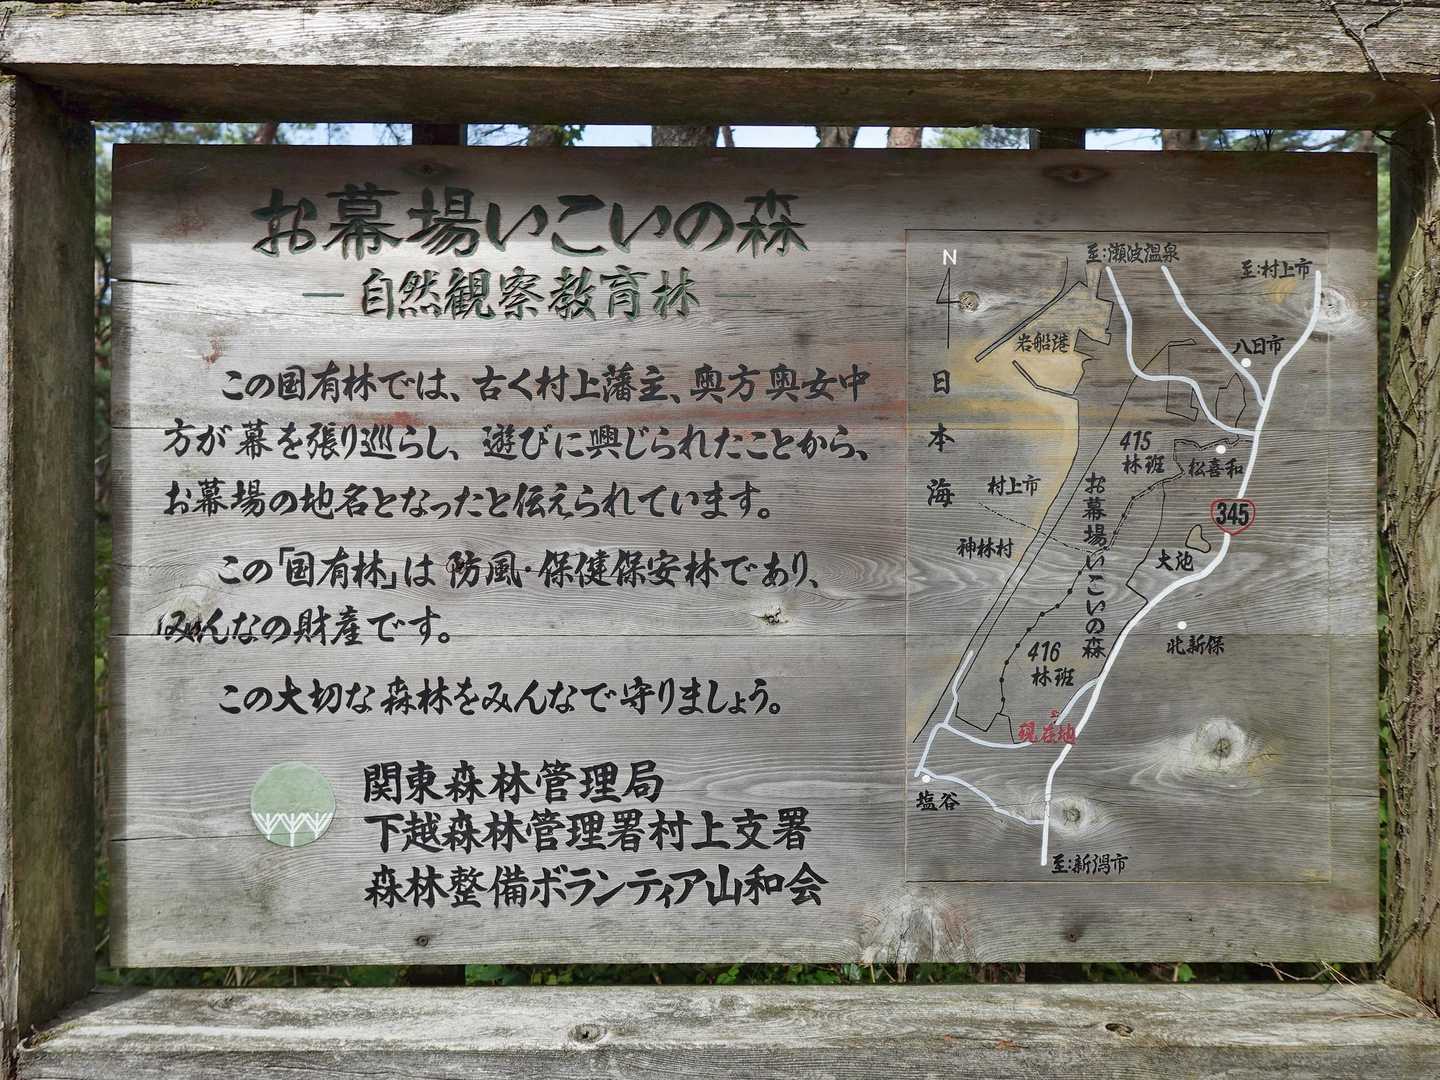 お幕場いこいの森
―自然観察教育林―
この国有林では、古く村上藩主、奥方奥女中
方が幕を張り巡らし、遊びに興じられたことから、
お幕場の地名となったと伝えられています。
この「国有林」は防風・保健保安林であり、
みんなの財産です。
この大切な森林をみんなで守りましょう。
関東森林管理局
下越森林管理署村上支署
森林整備ボランティア山和会
N
至:瀬波温泉
至:村上市
岩船港
八日市
日本海
415
林班
松喜和
村上市
お幕場いこいの森
345
神林村
大池
416
林班
北新保
現在地
塩谷
至:新潟市